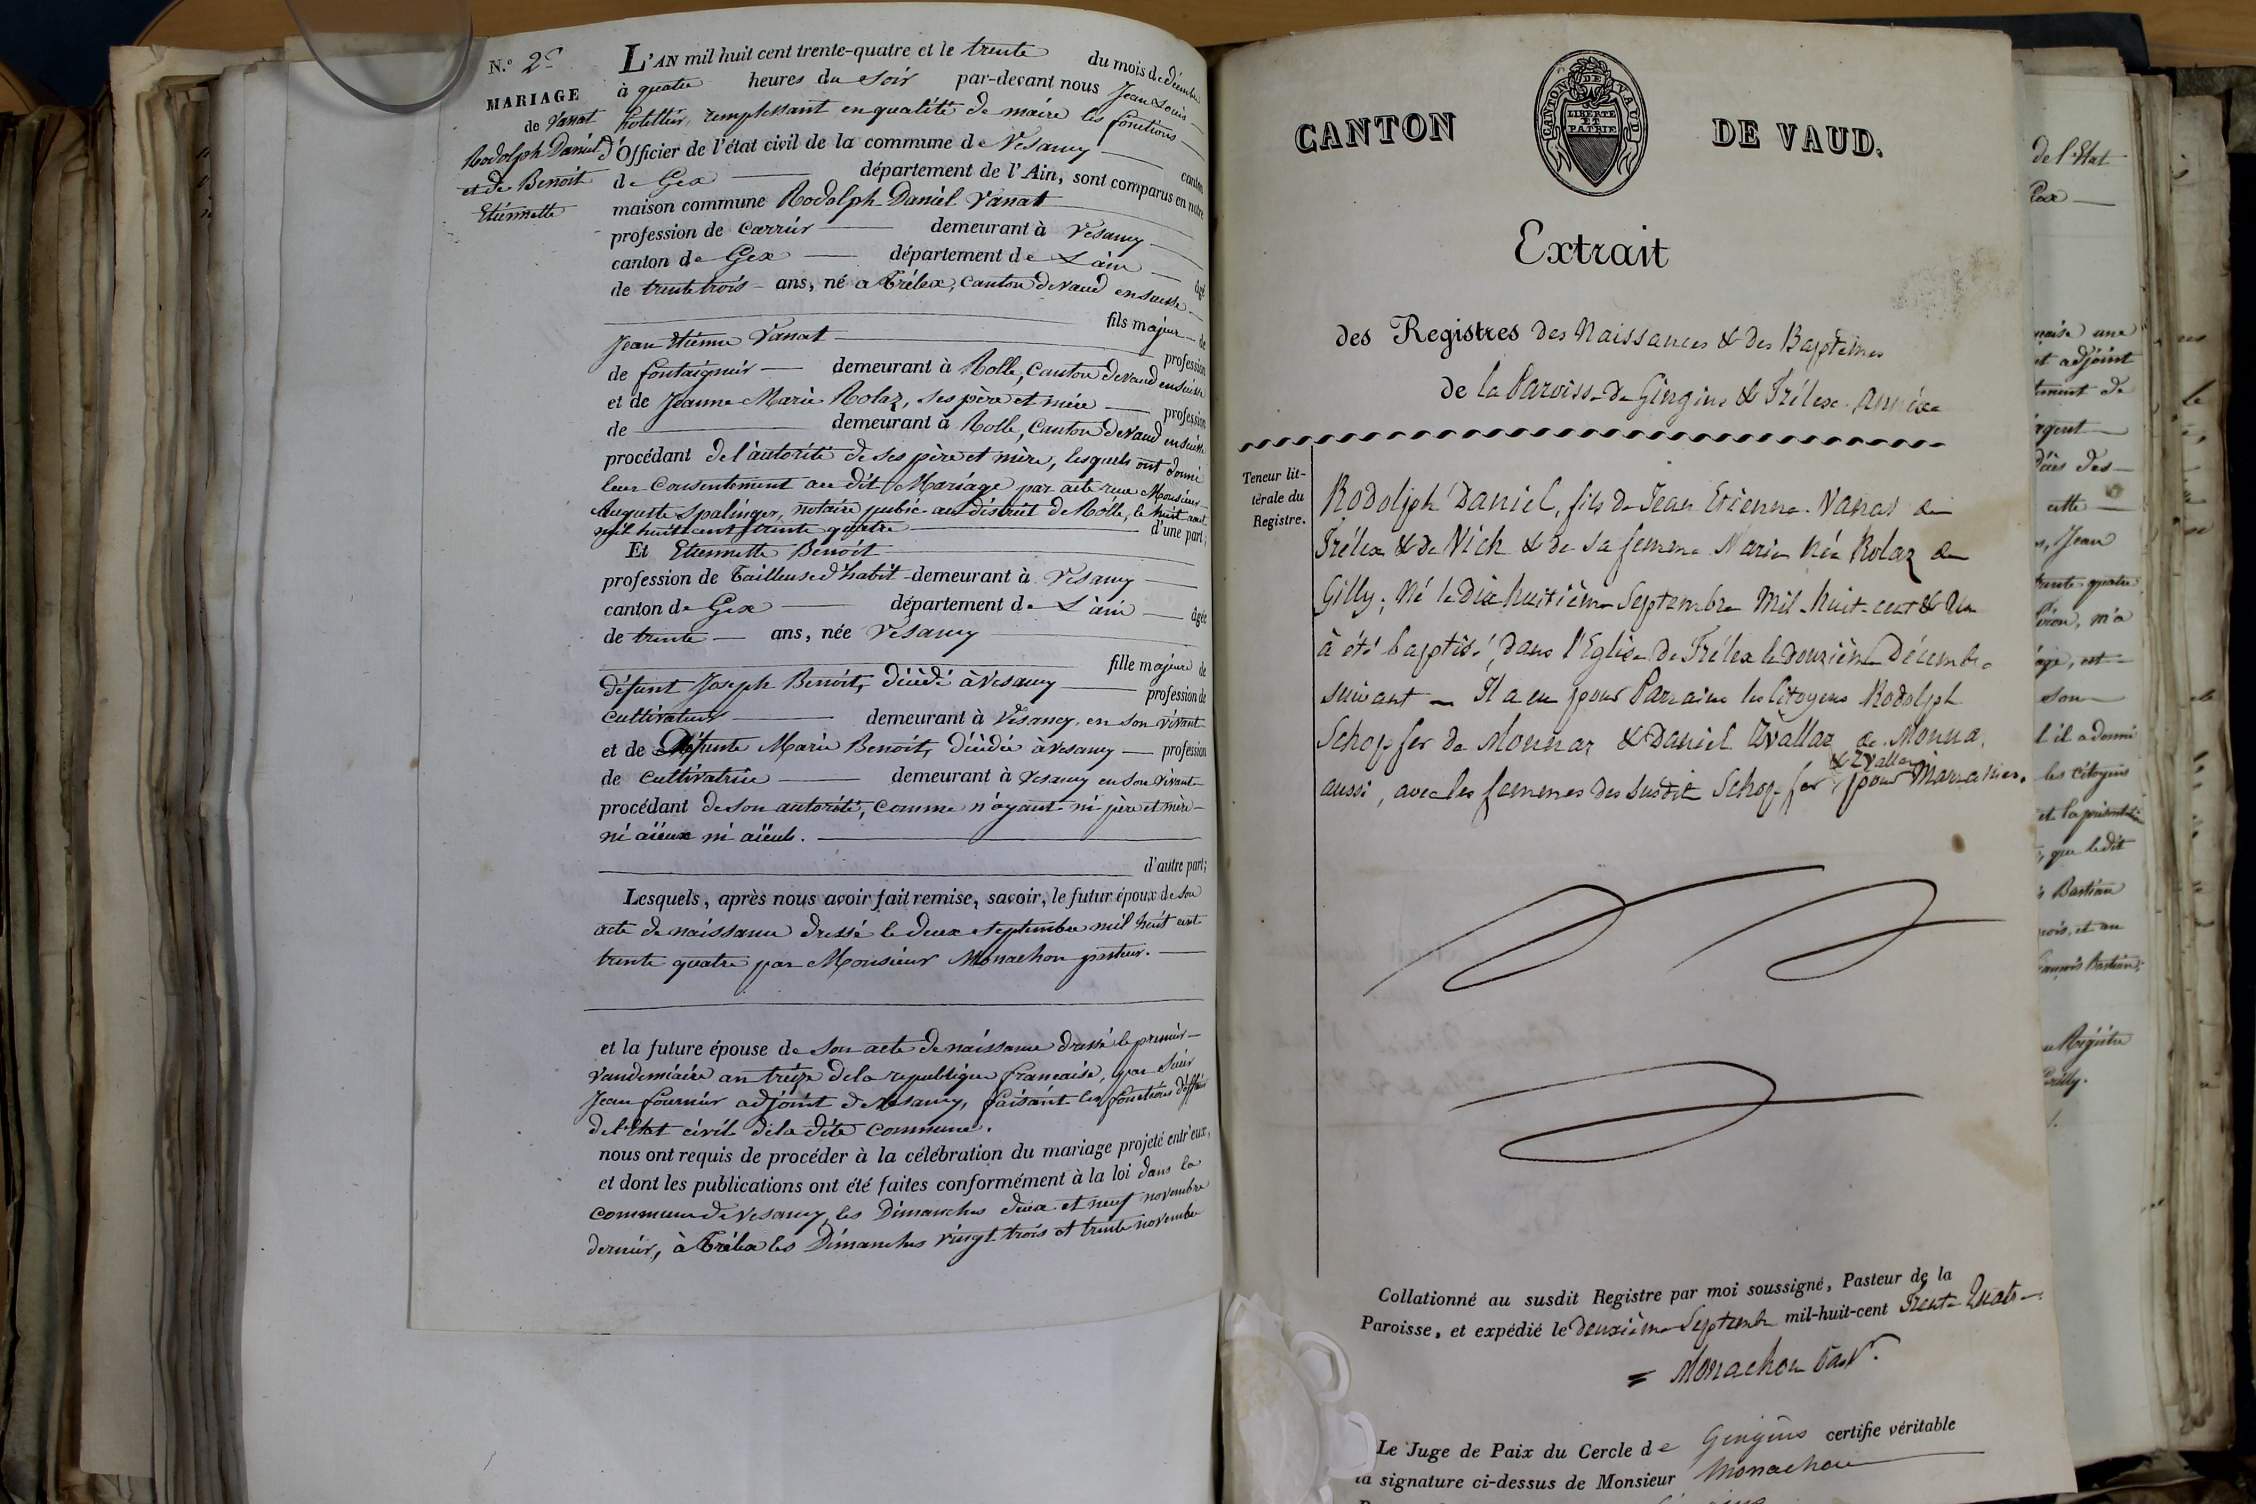 N.o 2e
MARIAGE
de Vanat
Rodolph Daniel
et de Benoit
Etiennette
L'AN mil huit cent trente-quatre et le trente du mois de décembre
à quatre heures du soir par-devant nous Jean Louis
hotellier, remplissant en qualité de maire les fonctions
d'Officier de l'état civil de la commune de Vesancy canton
de Gex département de l'Ain, sont comparus en notre
maison commune Rodolph Daniel Vanat
profession de Carrier demeurant à Vesancy
canton de Gex département de L'ain âgé
de trente trois ans, né a Trélex, Canton de vaud en suisse
fils majeur de
Jean Etienne Vanat profession
de fontaignier demeurant à Rolle, Canton de vaud en suisse
et de Jeanne Marie Rolaz, ses père et mère profession
de demeurant à Rolle, Canton de vaud en suisse
procédant de l'autorité de ses père et mère, lesquels ont donné
leur Consentement au dit Mariage par acte reçu Monsieur
Auguste Spalinger, notaire public au district de Rolle, le huit aout
mil huit cent trente quatre d'une part;
Et Etiennette Benoit
profession de Tailleuse d'habit demeurant à Vesancy
canton de Gex département de L'ain âgée
de trente ans, née Vesancy
fille majeure de
défunt Joseph Benoit, décédé à Vesancy profession de
Cultivateur demeurant à Vesancy en son vivant
et de Défunte Marie Benoit, décédée à Vesancy profession
de Cultivatrice demeurant à Vesancy en son vivant
procédant de son autorité, comme n'ayant ni père et mère
ni aïeux ni aïeuls.
d'autre part;
Lesquels, après nous avoir fait remise, savoir, le futur époux de son
acte de naissance dressé le deux septembre mil huit cent
trente quatre par Monsieur Monachon pasteur.
et la future épouse de son acte de naissance dressé le premier
vandemiaire an treize de la republique francaise, par Sieur
Jean fournier adjoint de Vesancy, faisant les fonctions d'officier
de l'Etat civil de la dite commune.
nous ont requis de procéder à la célébration du mariage projeté entr'eux,
et dont les publications ont été faites conformément à la loi dans la
commune de Vesancy, les Dimanches deux et neuf novembre
dernier, à Trélex les Dimanches vingt trois et trente novembre
CANTON DE VAUD.
CANTON DE VAUD
LIBERTÉ
ET
PATRIE
Extrait
des Registres des Naissances & des Baptêmes
de la Paroisse de Gingins & Trélex annexe
Teneur lit-
térale du
Registre.
Rodolph Daniel, fils de Jean Etienne Vanat de
Trélex & de Nich & de sa femme Marie née Rolaz de
Gilly; Né le Dix huitième Septembre Mil huit-cent & Un
à été baptisé, dans l'Eglise de Trélex le douzième Décembre
suivant ~ Il a eu pour Parrains les Citoyens Rodolph
Schopfer de Monnaz & Daniel Zvallaz de Monnaz,
& Zvallaz
aussi, avec les femmes des susdits Schopfer pour Marraines.
Collationné au susdit Registre par moi soussigné, Pasteur de la
Paroisse, et expédié le deuxième Septembre mil-huit-cent Trente Quatre
= Monachon Past.
Le Juge de Paix du Cercle de Gingins certifie véritable
la signature ci-dessus de Monsieur Monachon
de l'Etat
une
et adjoint
de
argent
des
cette
Jean
trente quatre
m'a
est
son
il a donné
les citoyens
et la présente
que ledit
Bastian
et au
françois Bastian;
Régistre